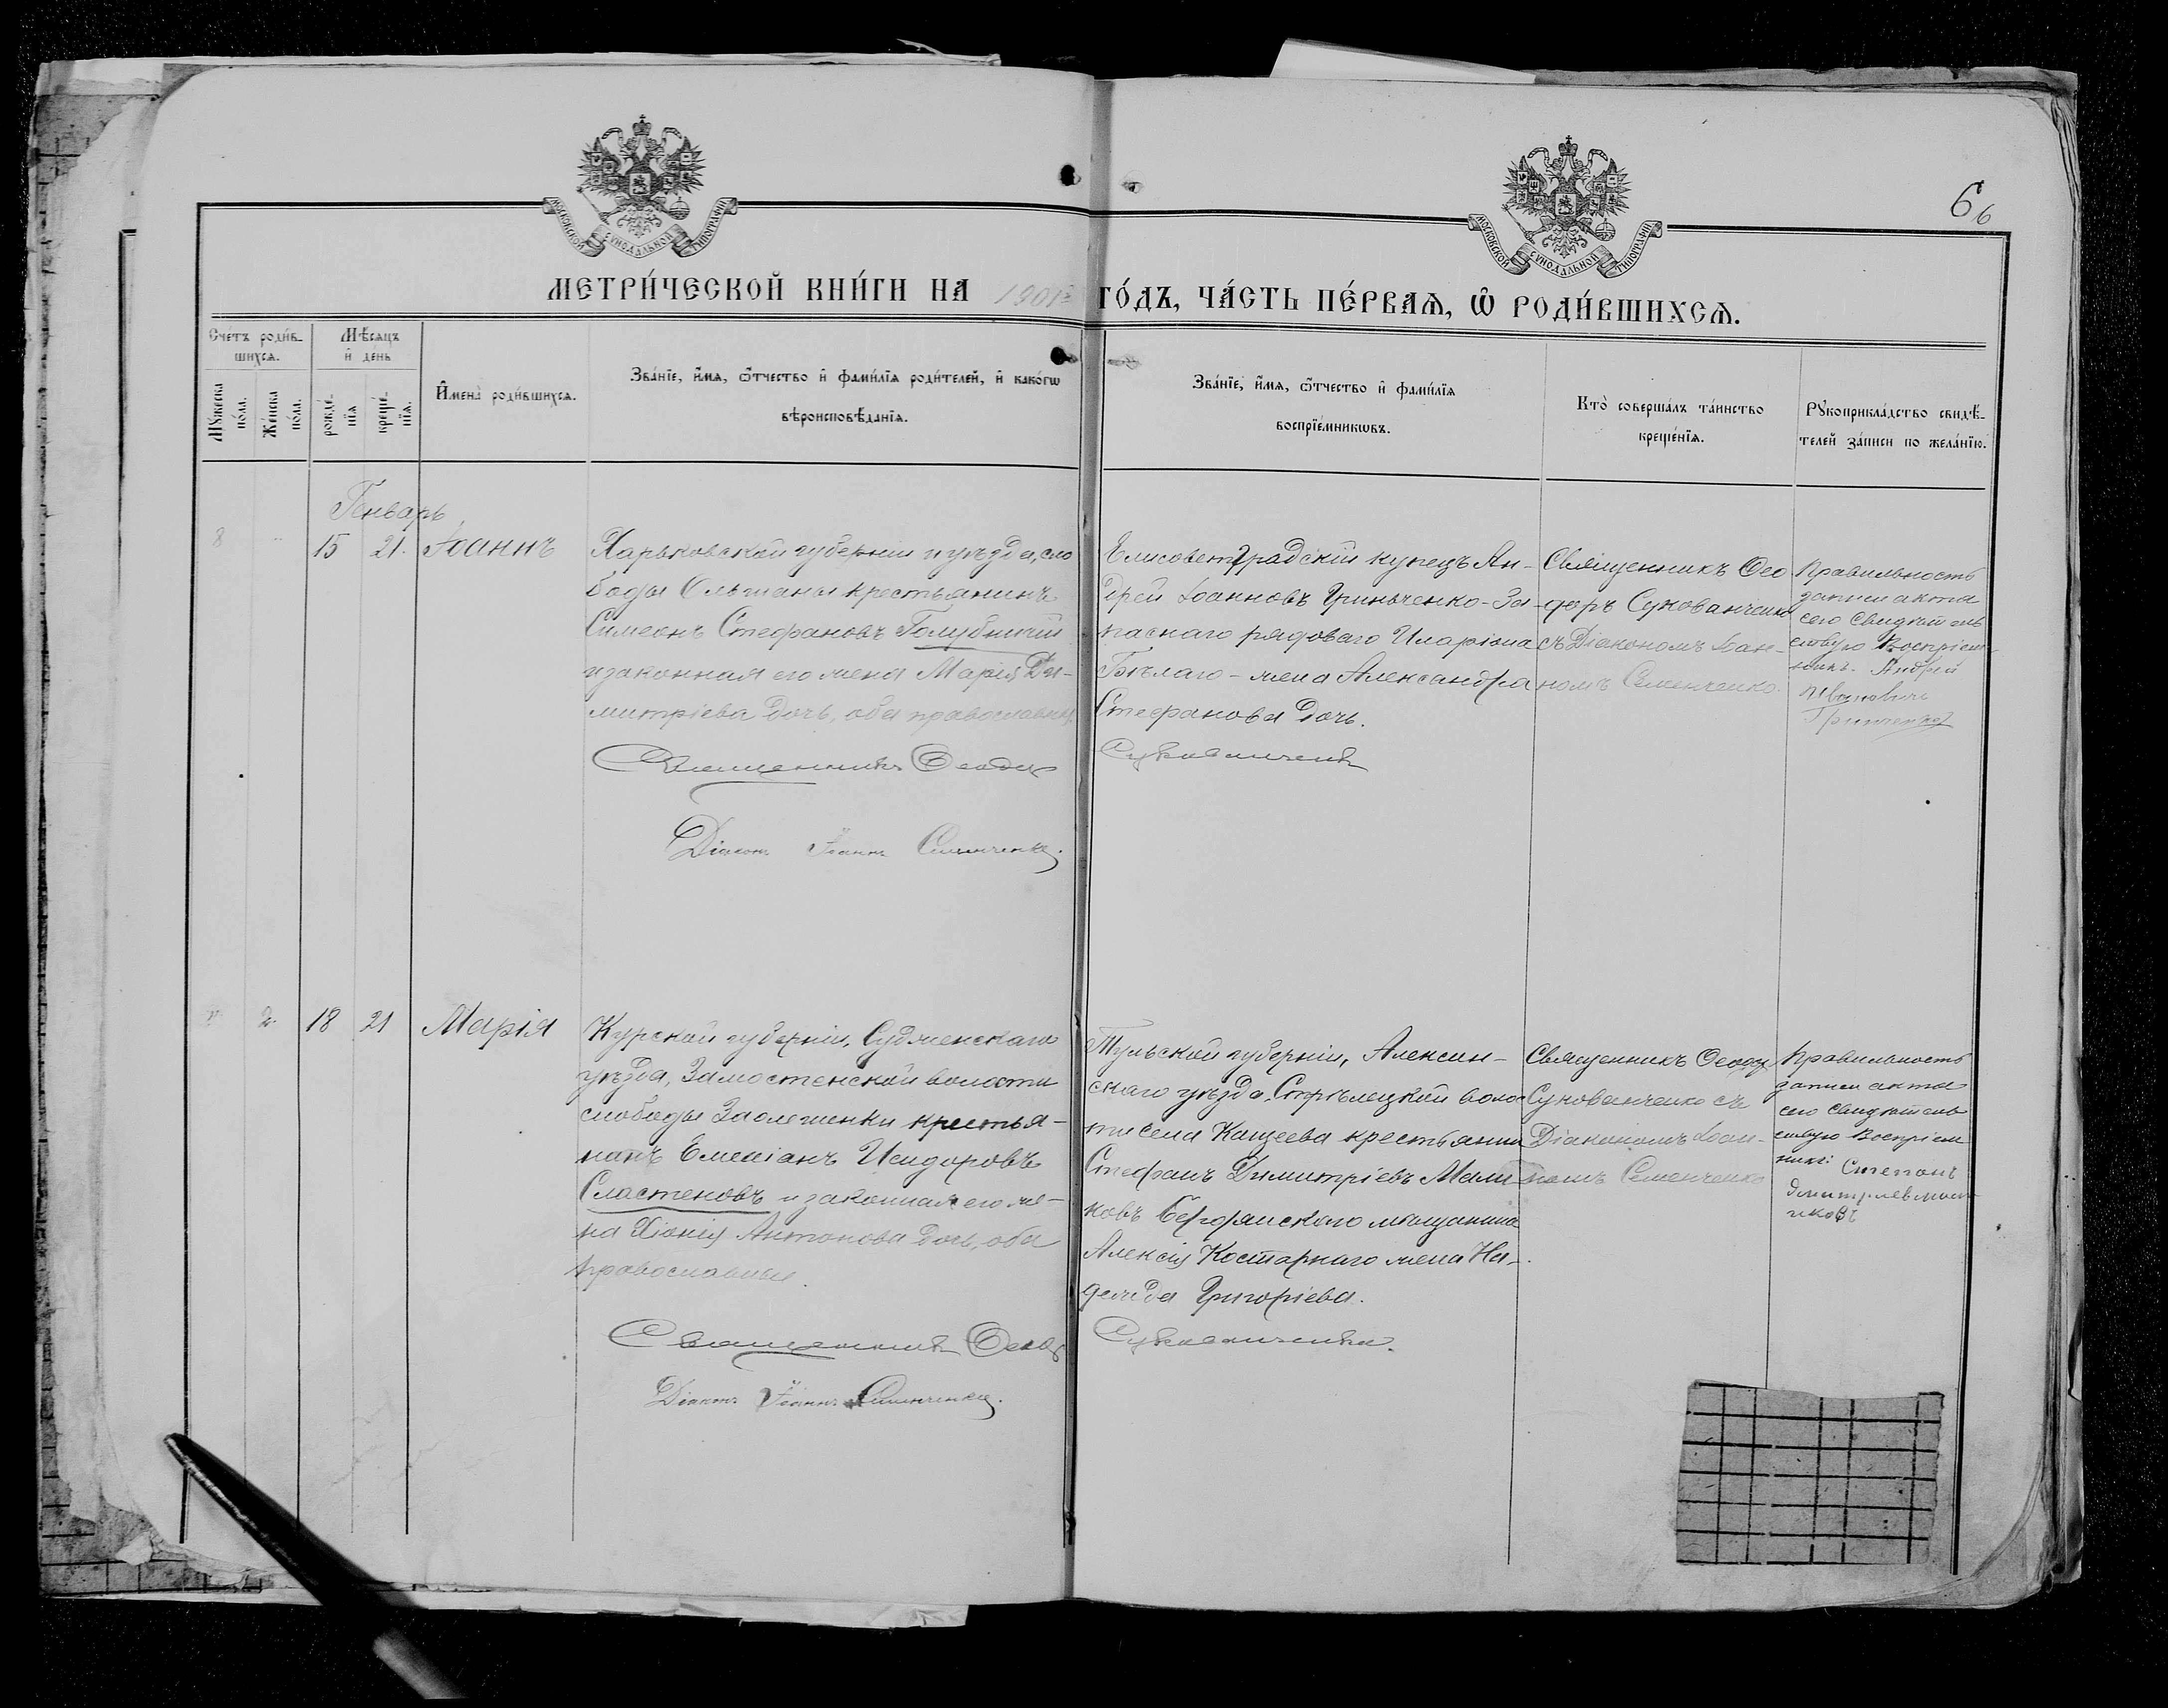 6 6
МОСКОВСКОЙ СѴНОДАЛЬНОЙ ТИПОГРАФІИ
МОСКОВСКОЙ СѴНОДАЛЬНОЙ ТИПОГРАФІИ
МЕТРИ́ЧЕСКОЙ КНИ́ГИ НА 1901й ГО́ДЪ, ЧА́СТЬ ПЕ́РВАѦ, Ѡ҆ РОДИ́ВШИХСѦ.
Сче́тъ роди́в-
шихсѧ.
Мꙋ́жеска по́ла.
Же́нска по́ла.
Мѣ́сѧцъ
и҆ де́нь
рожде́-
нїѧ
креще́-
нїѧ.
И҆мена̀ роди́вшихсѧ.
Зва́нїе, и҆́мѧ, ѻ҆́тчество и҆ фами́лїѧ роди́телей, и҆ како́гѡ
вѣроисповѣ́данїѧ.
Зва́нїе, и҆́мѧ, ѻ҆́тчество и҆ фами́лїѧ
воспрїе́мникѡвъ.
Кто̀ соверша́лъ та́инство
креще́нїѧ.
Рꙋкоприкла́дство свидѣ́-
телей за́писи по жела́нїю.
Генварь
8
15
21.
Іоаннъ
Харьковской губерніи и уѣзда, сло
боды Ольшаны крестьянинъ
Симеонъ Стефановъ Голубничій
и законная его жена Марія Ди-
митріева дочь, оба православны
Священникъ Ѳеодоръ
Діаконъ Іоаннъ Семенченко.
Елисоветградскій купецъ Ан-
дрей Іоанновъ Гриньченко - За-
паснаго рядоваго Иларіона
Бѣлаго - жена Александра
Стефанова дочь.
Сукованченко
Священникъ Ѳео
доръ Сукованченко
съ Діакономъ Іоан-
номъ Семенченко.
Правильность
записи акта
сего свидѣтель
ствую Воспріем-
никъ. Андрей
Ивановичъ
Гринченко
2
18
21
Марія
Курской губерніи, Суджанскаго
уѣзда, Замостенской волости
слободы Заолешенки крестья-
нинъ Емеліанъ Исидоровъ
Сластеновъ и законная его же-
на Хіонія Антонова дочь, оба
православные.
Священникъ Ѳеодоръ
Діаконъ Іоаннъ Семенченко.
Тульской губерніи, Алексин-
скаго уѣзда, Стрѣлецкой волос
ти села Кащеева крестьянин
Стефанъ Димитріевъ Мали-
ковъ мѣщанина
Алексія Костарнаго жена На-
дежда Григоріева.
Сукованченко.
Священникъ Ѳеодоръ
Сукованченко съ
Діакономъ Іоан-
номъ Семенченко
Правильность
записи акта
сего свидѣтель
ствую Воспріем
никъ: Степанъ